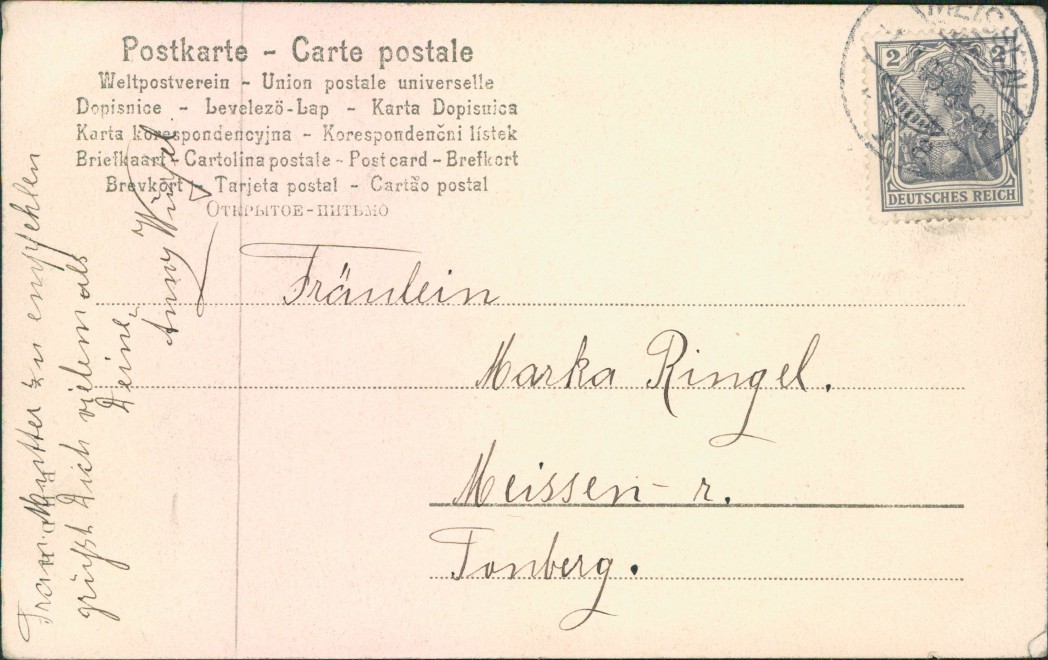 Postkarte - Carte postale
Weltpostverein - Union postale universelle
Dopisnice - Levelezö-Lap - Karta Dopisnica
Karta korespondencyjna - Korespondenčni lístek
Briefkaart - Cartolina postale - Postcard - Brefkort
Brevkort - Tarjeta postal - Cartão postal
Открытое-питьмо
2 2
DEUTSCHES REICH
MEISSEN
Fräulein
Marka Ringel.
Meissen - r.
Tonberg.
Frau Mutter zu empfehlen
grüßt Dich vielemals
Deine
Anny